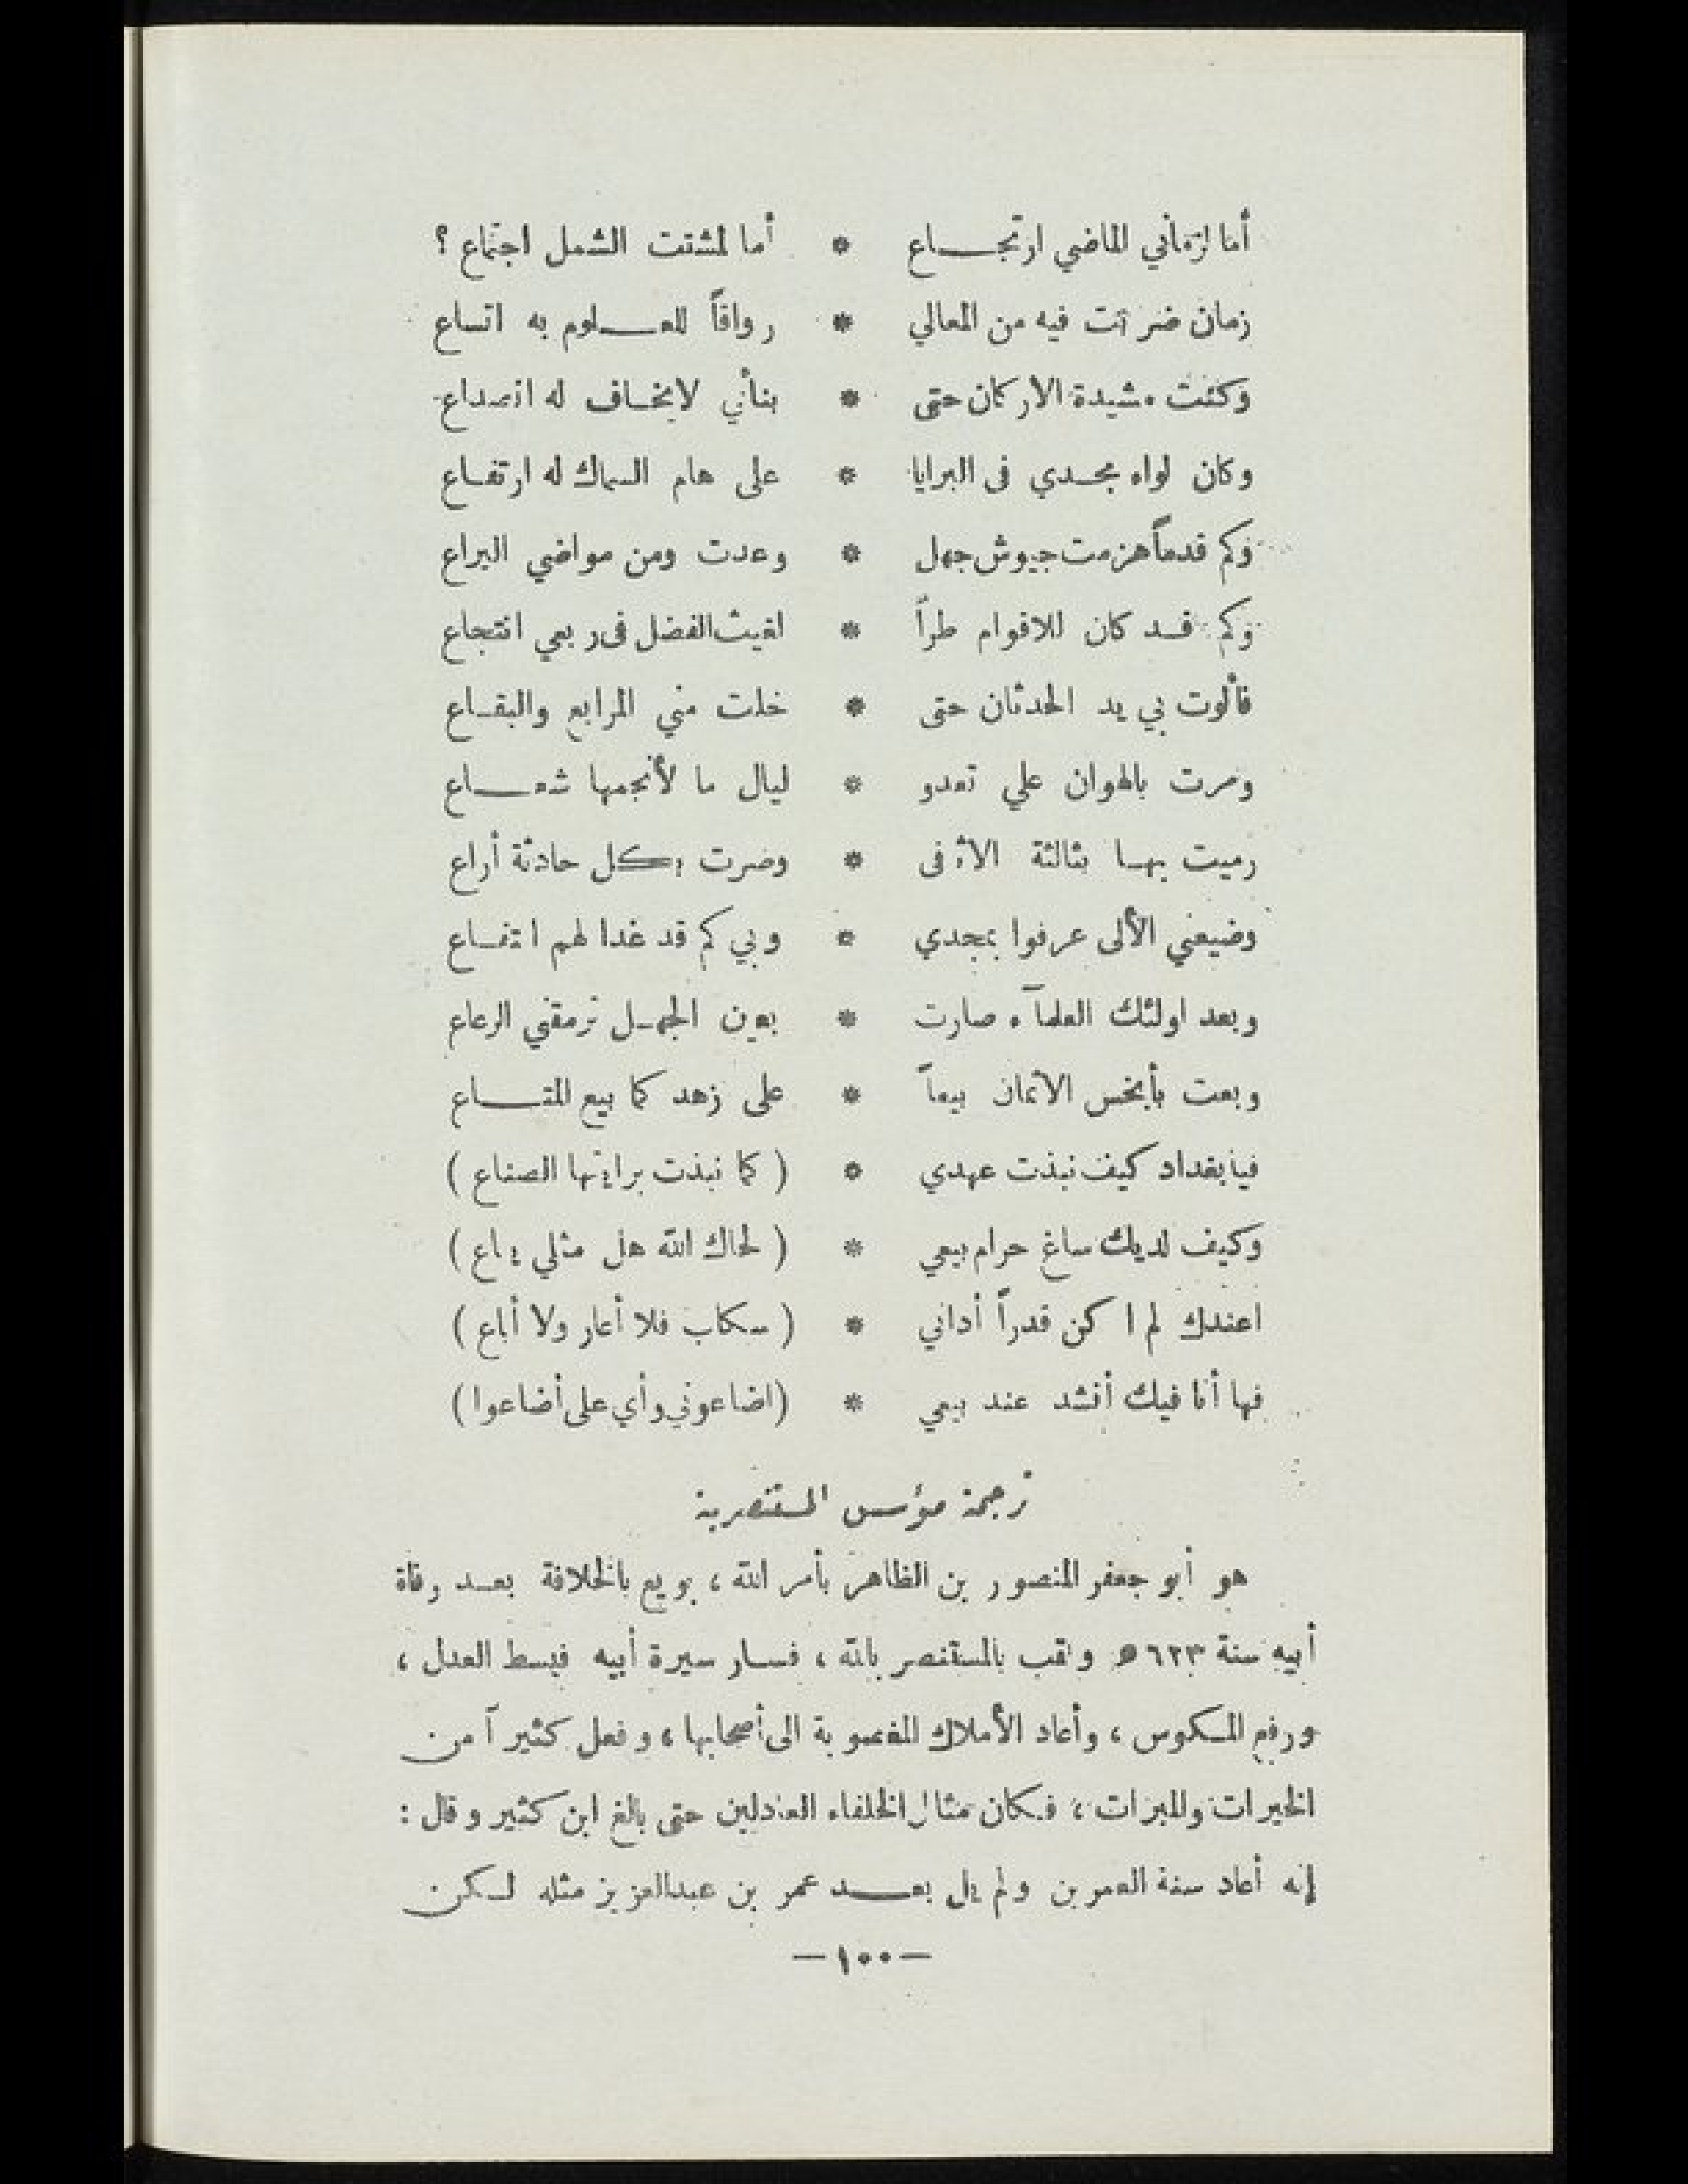 أما لزماني الماضي ارتجـــاع * أما لمشتت الشمل اجتماع ؟
زمان ضربت فيه من المعالي * رواقاً للعـــلوم به اتساع
وكنت مشيدة الاركان حتى * بنأني لايخـاف له انصداع
وكان لواء مجـدي في البرايا * على هام السماك له ارتفـاع
وكم قدماً هزمت جيوش جهل * وعدت ومن مواضي اليراع
وكم قـد كان للاقوام طراً * لغيث الفضل في ربعي انتجاع
فألوت بي يد الحدثان حتى * خلت مني المرابع والبقـاع
ومرت بالهوان علي تعدو * ليال ما لأنجمها شعـــاع
رميت بهـا بثالثة الاثافي * وصرت بكل حادثة أراع
وضيعني الألى عرفوا بمجدي * وبي كم قد غدا لهم انتفـاع
وبعد اولئك العلمآء صارت * بعين الجهـل ترمقني الرعاع
وبعت بأبخس الاثمان بيعاً * على زهد كما بيع المتـــاع
فيابغداد كيف نبذت عهدي * ( كما نبذت برايتها الصناع )
وكيف لديك ساغ حرام بيعي * ( لحاك الله هل مثلي يباع )
اعندك لم اكن قدراً أداني * ( سكاب فلا أعار ولا أباع )
فها أنا فيك أنشد عند بيعي * ( اضاعوني وأي على أضاعوا )
ترجمة مؤسس المستنصرية
هو أبو جعفر المنصور بن الظاهر بأمر الله ، بويع بالخلافة بعـد وفاة
أبيه سنة ٦٢٣ ه ولقب بالمستنصر بالله ، فسـار سيرة أبيه فبسط العدل ،
ورفع المـكوس ، وأعاد الأملاك المغصوبة الى أصحابها ، وفعل كثيراً من
الخيرات والمبرات ، فـكان مثال الخلفاء العادلين حتى بالغ ابن كثير وقال :
إنه أعاد سنة العمرين ولم يل بعـــد عمر بن عبدالعزيز مثله لـكن
— ١٠٠ —